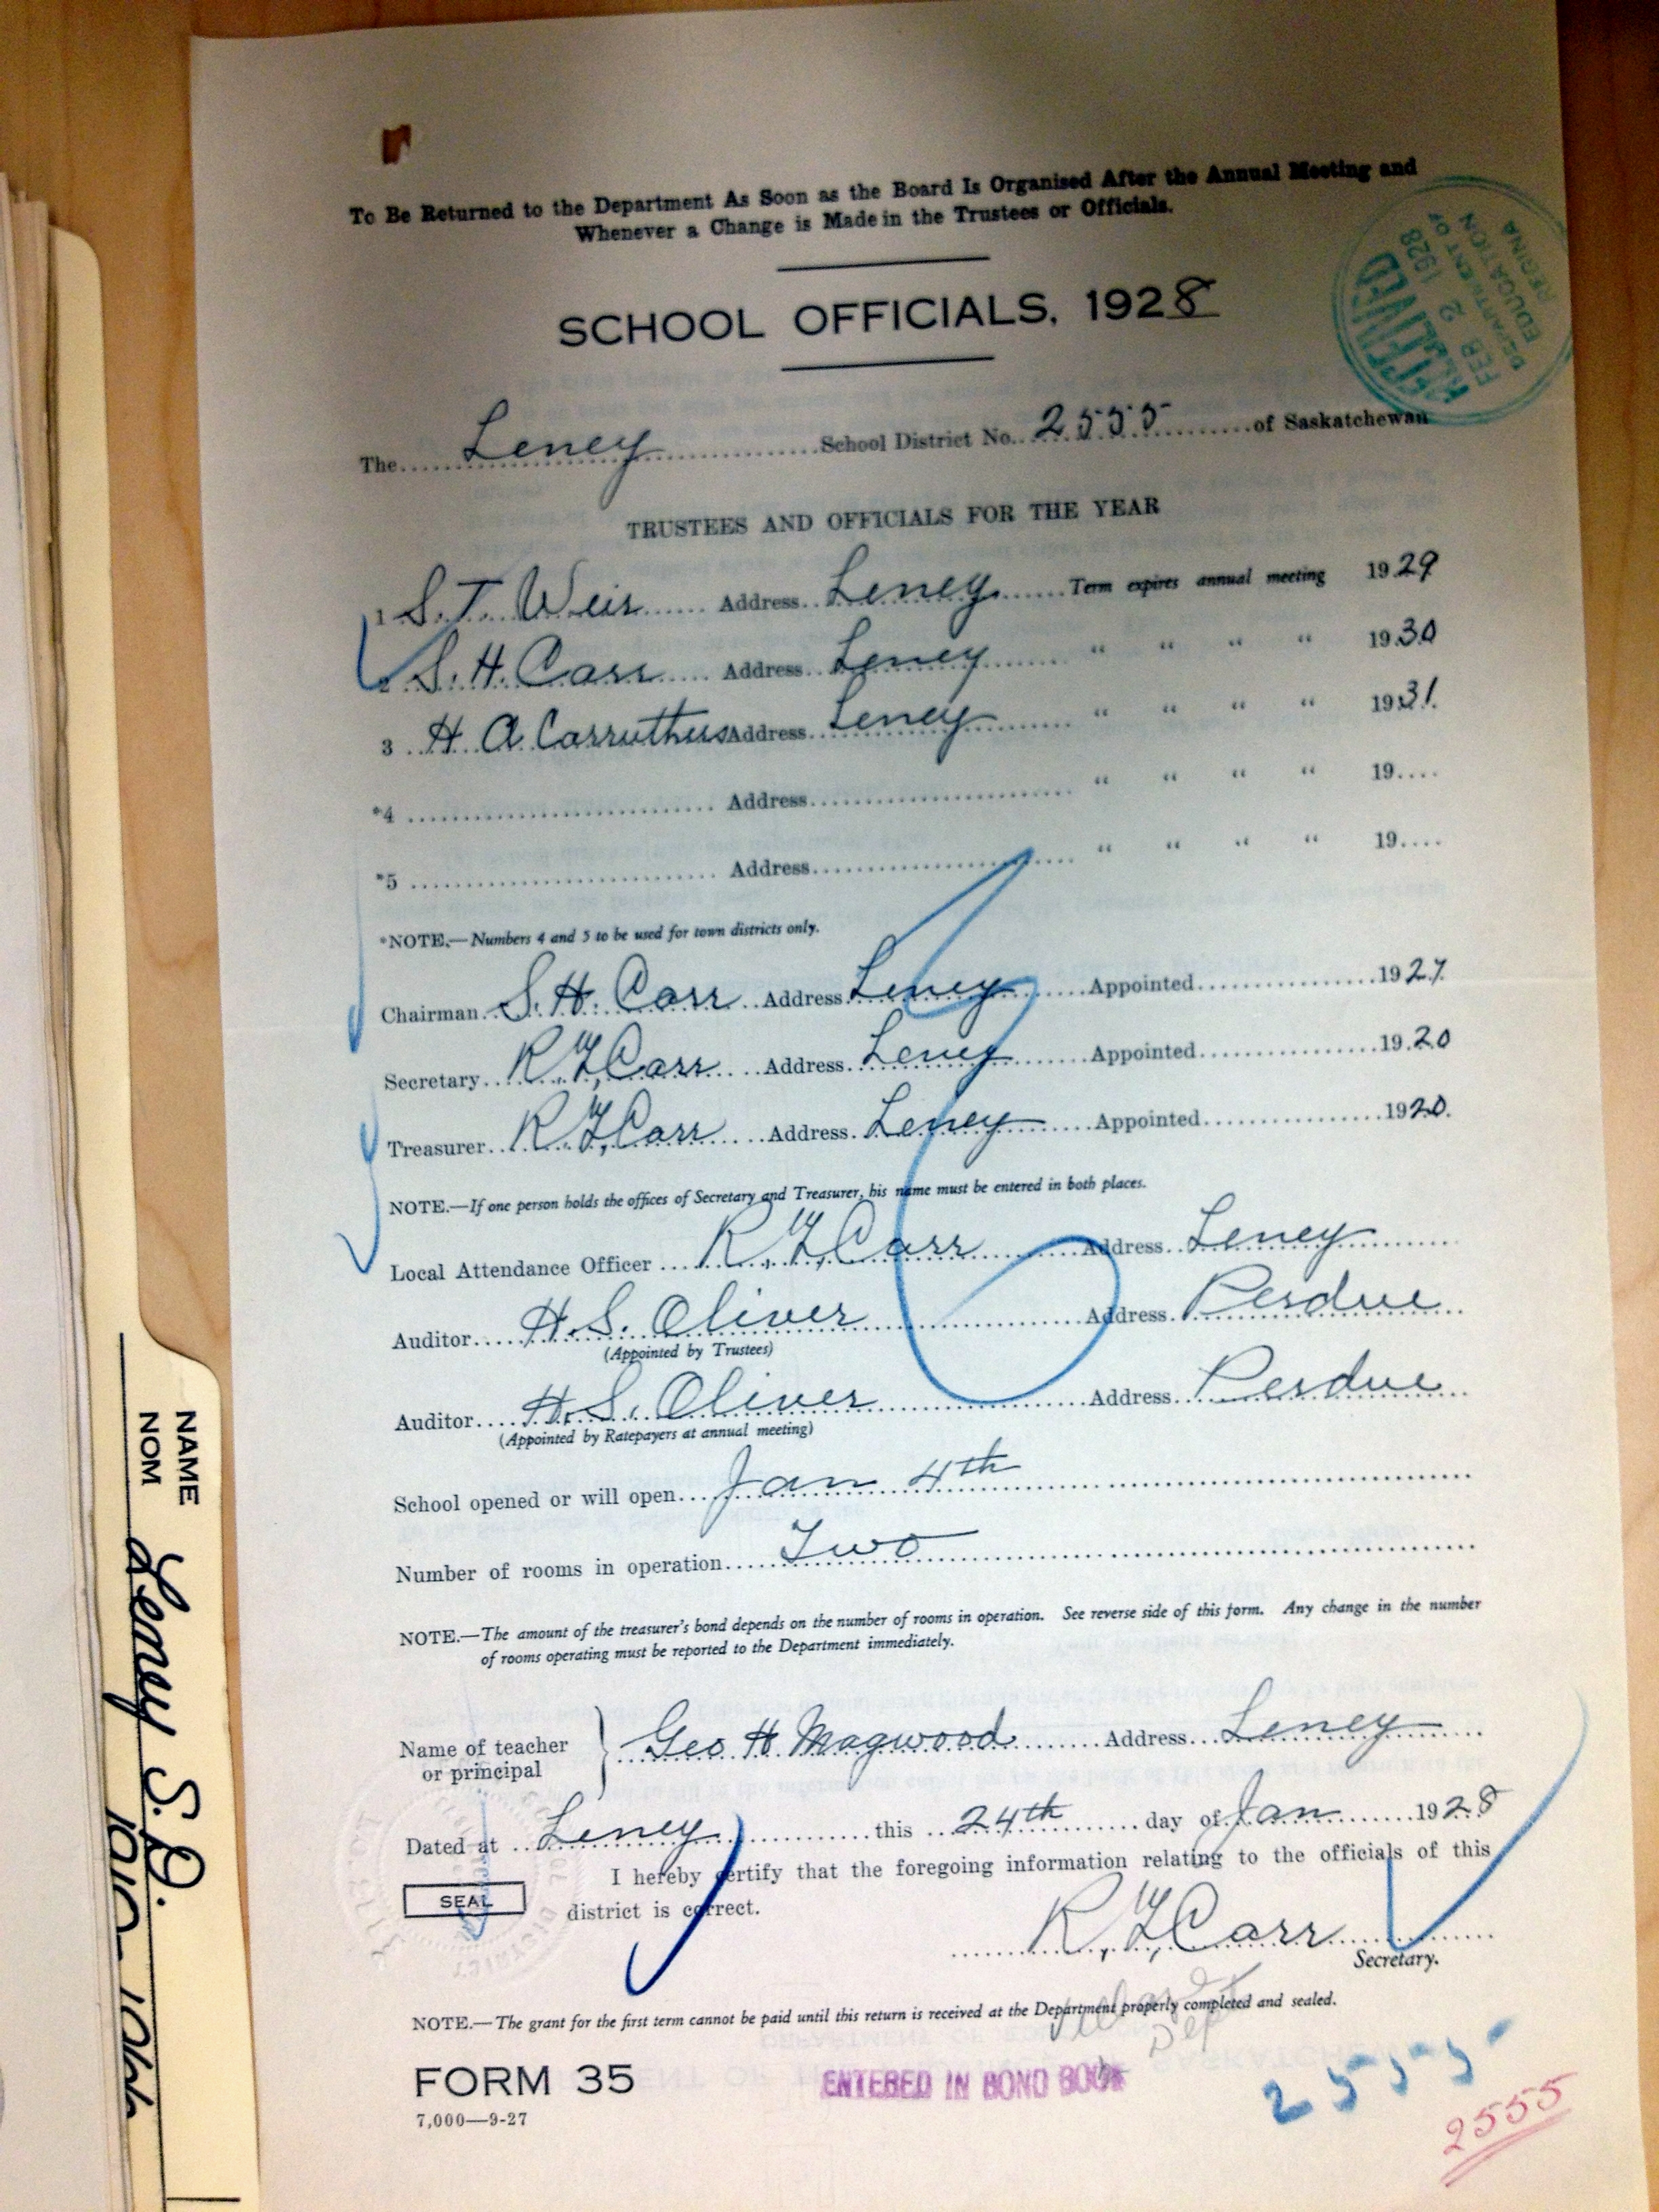 To Be Returned to the Department As Soon as the Board Is Organised After the Annual Meeting and
Whenever a Change is Made in the Trustees or Officials.
RECEIVED
FEB 2 1928
DEPARTMENT OF
EDUCATION
REGINA
SCHOOL OFFICIALS, 1928
The Leney School District No. 2555 of Saskatchewan
TRUSTEES AND OFFICIALS FOR THE YEAR
1 S. T. Weir Address Leney Term expires annual meeting 1929
2 S. H. Carr Address Leney " " " " 1930
3 H A Carruthers Address Leney " " " " 1931.
*4 Address " " " " 19
*5 Address " " " " 19
*NOTE.—Numbers 4 and 5 to be used for town districts only.
Chairman S. H. Carr Address Leney Appointed 1927
Secretary R. W. Carr Address Leney Appointed 1920
Treasurer R. W. Carr Address Leney Appointed 1920.
NOTE.—If one person holds the offices of Secretary and Treasurer, his name must be entered in both places.
Local Attendance Officer R. W. Carr Address Leney
Auditor H. S. Oliver Address Perdue
(Appointed by Trustees)
Auditor H. S. Oliver Address Perdue
(Appointed by Ratepayers at annual meeting)
School opened or will open Jan 4th
Number of rooms in operation Two
NOTE.—The amount of the treasurer's bond depends on the number of rooms in operation. See reverse side of this form. Any change in the number
of rooms operating must be reported to the Department immediately.
Name of teacher
or principal
Geo H. Magwood Address Leney
Dated at Leney this 24th day of Jan 1928
I hereby certify that the foregoing information relating to the officials of this
district is correct.
SEAL
R. W. Carr
Secretary.
NOTE.—The grant for the first term cannot be paid until this return is received at the Department properly completed and sealed.
Dept
FORM 35
ENTERED IN BOND BOOK
7,000—9-27
2555
2555
NAME
NOM
Leney S.D.